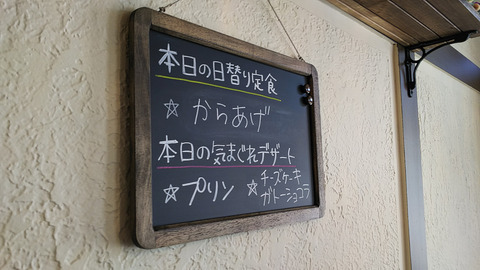 本日の日替り定食
☆ からあげ
本日の気まぐれデザート
☆ プリン ☆ チーズケーキ
ガトーショコラ